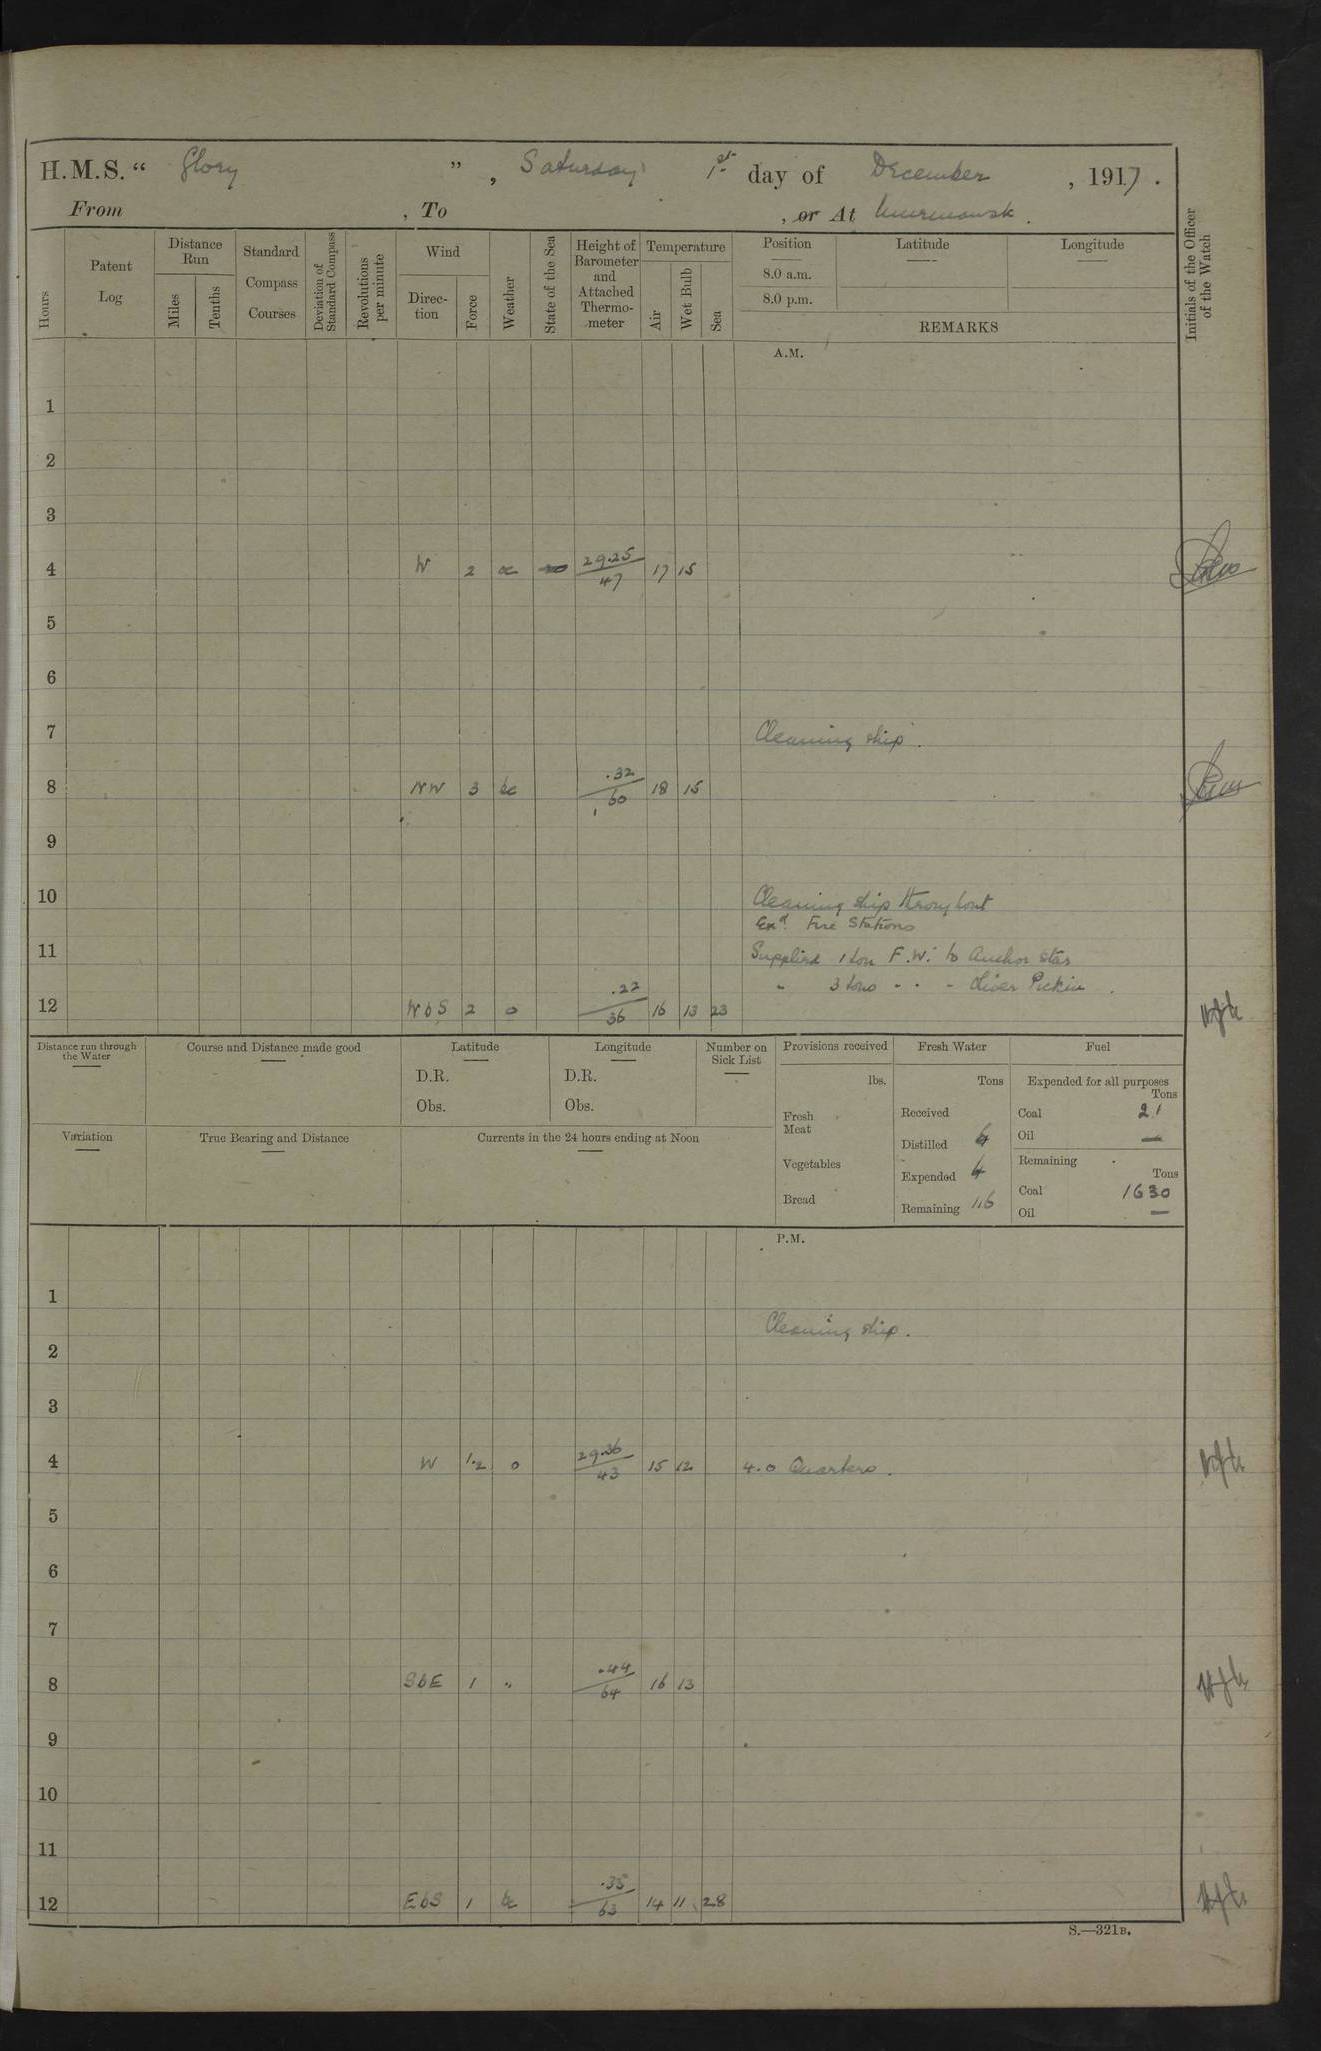 H.M.S. “ Glory ” , Saturday 1st day of December , 1917 .
From , To , or At Murmansk .
Hours
Patent Log
Distance Run
Miles
Tenths
Standard Compass Courses
Deviation of Standard Compass
Revolutions per minute
Wind
Direc-tion
Force
Weather
State of the Sea
Height of Barometer and Attached Thermo-meter
Temperature
Air
Wet Bulb
Sea
Position
8.0 a.m.
8.0 p.m.
Latitude
Longitude
REMARKS
Initials of the Officer of the Watch
A.M.
1
2
3
4 W 2 29.25 47 17 15
5
6
7 Cleaning ship.
8 NW 3 bc .32 60 18 15
9
10 Cleaning ship throughout
Exd. Fire Stations
11 Supplied 1 ton F.W. to Anchor Star
" 3 tons - - - Oliver Pickin .
12 WbS 2 o .22 36 16 13 23
Distance run through the Water
Course and Distance made good
Latitude
D.R.
Obs.
Longitude
D.R.
Obs.
Number on Sick List
Variation
True Bearing and Distance
Currents in the 24 hours ending at Noon
Provisions received
lbs.
Fresh Meat
Vegetables
Bread
Fresh Water
Tons
Received
Distilled
Expended
Remaining 116
Fuel
Expended for all purposes
Tons
Coal 21
Oil —
Remaining
Tons
Coal 1630
Oil —
P.M.
1
Cleaning ship.
2
3
4 W 1.2 o 29.36 43 15 12 4.0 Quarters.
5
6
7
8 SbE 1 " .44 64 16 13
9
10
11
12 EbS 1 bc .35 63 14 11 28
S.—321B.